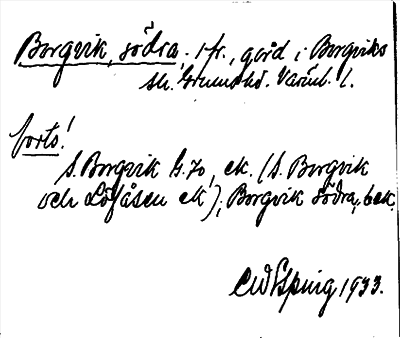 Borgvik, södra. 1 fr., gård i Borgviks
sn. Grums hd. Värml. l.
forts!
S. Borgvik G. 70, ek. (S. Borgvik
och Löfåsen ek.); Borgvik södra, bek.
CWEsping 1933.